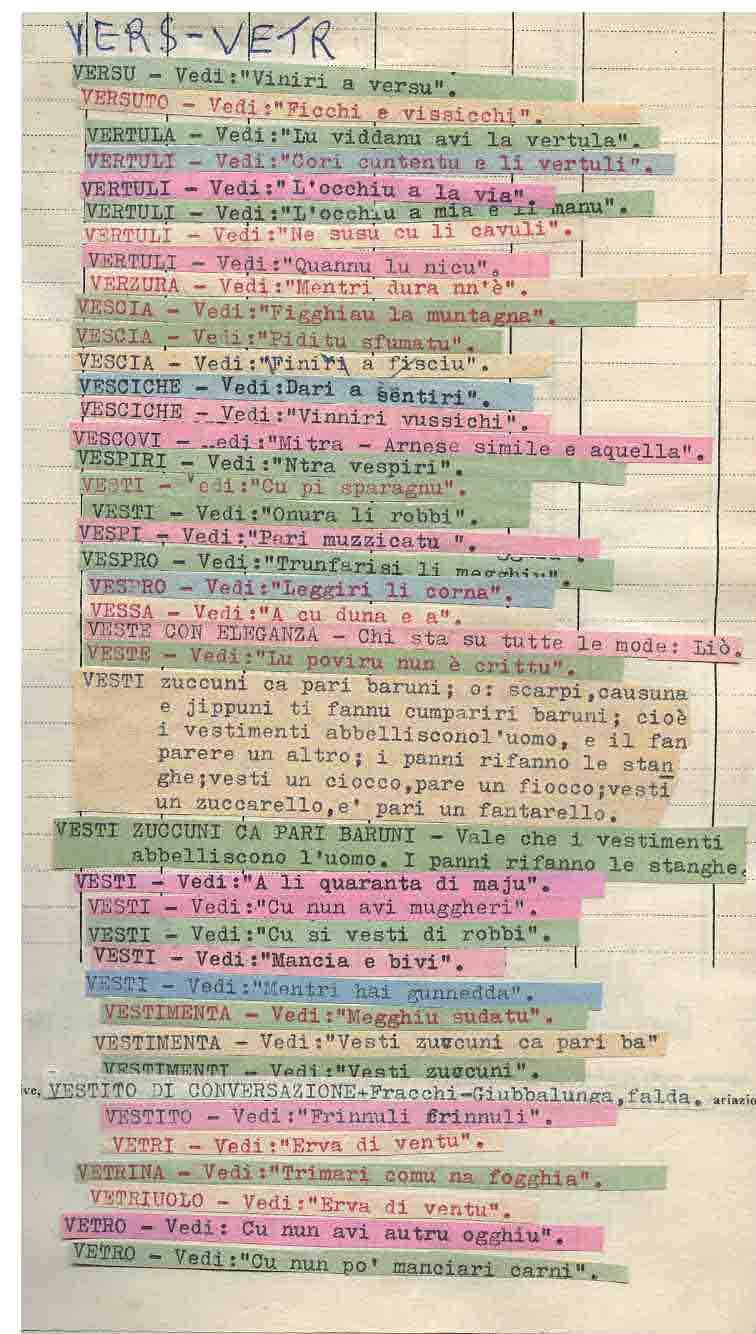 VERS-VETR
VERSU - Vedi:"Viniri a versu".
VERSUTO - Vedi:"Ficchi e vissicchi".
VERTULA - Vedi:"Lu viddanu avi la vertula".
VERTULI - Vedi:"Cori cuntentu e li vertuli".
VERTULI - Vedi:" L'occhiu a la via".
VERTULI - Vedi:"L'occhiu a mia e li manu".
VERTULI - Vedi:"Ne susu cu li cavuli".
VERTULI - Vedi:"Quannu lu nicu".
VERZURA - Vedi:"Mentri dura nn'è".
VESCIA - Vedi:"Figghiau la muntagna".
VESCIA - Vedi:"Piditu sfumatu".
VESCIA - Vedi:"Finiri a fisciu".
VESCICHE - Vedi:Dari a sentiri".
VESCICHE - Vedi:"Vinniri vussichi".
VESCOVI - Vedi:"Mitra - Arnese simile e aquella".
VESPIRI - Vedi:"Ntra vespiri".
VESTI - Vedi:"Cu pi sparagnu".
VESTI - Vedi:"Onura li robbi".
VESPI - Vedi:"Pari muzzicatu ".
VESPRO - Vedi:"Trunfarisi li megghiu".
VESPRO - Vedi:"Leggiri li corna".
VESSA - Vedi:"A cu duna e a".
VESTE CON ELEGANZA - Chi sta su tutte le mode: Liò.
VESTE - Vedi:"Lu poviru nun è crittu".
VESTI zuccuni ca pari baruni; o: scarpi,causuna
e jippuni ti fannu cumpariri baruni; cioè
i vestimenti abbellisconol'uomo, e il fan
parere un altro; i panni rifanno le stan
ghe;vesti un ciocco,pare un fiocco;vesti
un zuccarello,e' pari un fantarello.
VESTI ZUCCUNI CA PARI BARUNI - Vale che i vestimenti
abbelliscono l'uomo. I panni rifanno le stanghe.
VESTI - Vedi:"A li quaranta di maju".
VESTI - Vedi:"Cu nun avi muggheri".
VESTI - Vedi:"Cu si vesti di robbi".
VESTI - Vedi:"Mancia e bivi".
VESTI - Vedi:"Mentri hai gunnedda".
VESTIMENTA - Vedi:"Megghiu sudatu".
VESTIMENTA - Vedi:"Vesti zuccuni ca pari ba"
VESTIMENTI - Vedi:"Vesti zuccuni".
ve. VESTITO DI CONVERSAZIONE+Fracchi-Giubbalunga,falda. ariazio
VESTITO - Vedi:"Frinnuli frinnuli".
VETRI - Vedi:"Erva di ventu".
VETRINA - Vedi:"Trimari comu na fogghia".
VETRIUOLO - Vedi:"Erva di ventu".
VETRO - Vedi: Cu nun avi autru ogghiu".
VETRO - Vedi:"Cu nun po' manciari carni".